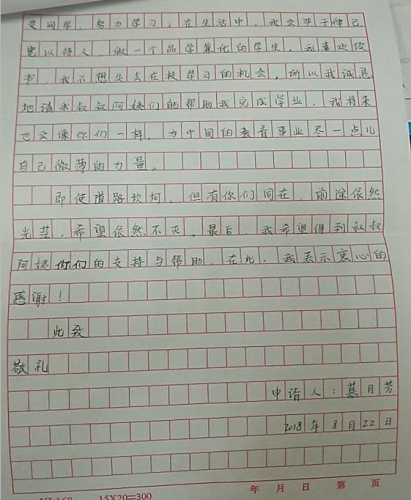 关同学,努力学习;在生活中,我会严于律己
宽以待人,做一个品学兼优的学生。我喜欢读
书,我不想失去在校学习的机会,所以我诚恳
地请求叔叔阿姨们能帮助我完成学业,我将来
也会像你们一样,为中国的教育事业尽一点儿
自己微薄的力量。
即使道路坎坷,但有你们同在,前途依然
光芒,希望依然不灭。最后,我希望得到叔叔
阿姨你们的支持与帮助,在此,我表示衷心的
感谢!
此致
敬礼
申请人:月芳
2018年8月22日
15X20=300
年 月 日 第 页